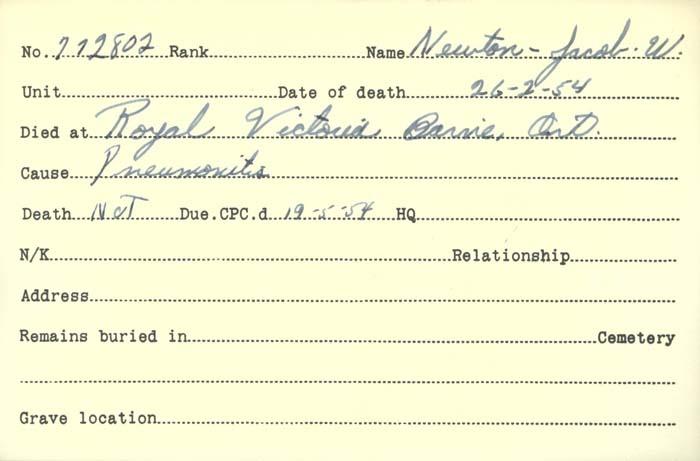 No. 772802 Rank Name Newton - Jacob. W.
Unit Date of death 26-2-54
Died at Royal Victoria Barrie, Ont.
Cause Pneumonitis
Death Not Due.CPC.d 19-5-54 HQ
N/K Relationship
Address
Remains buried in Cemetery
Grave location